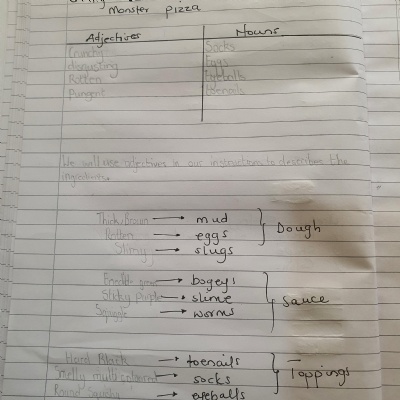 monster pizza
Adjectives Nouns
Crunchy Socks
disgusting Eggs
Rotten Eyeballs
Pungent toenails
We will use adjectives in our instructions to describe the
ingredients.
Thick Brown → mud
Rotten → eggs
Slimy → slugs
Dough
→ bogeys
Sticky purple → slime
→ worms
Sauce
Hard Black → toenails
Smelly multicoloured → socks
Round Squishy → eyeballs
Toppings